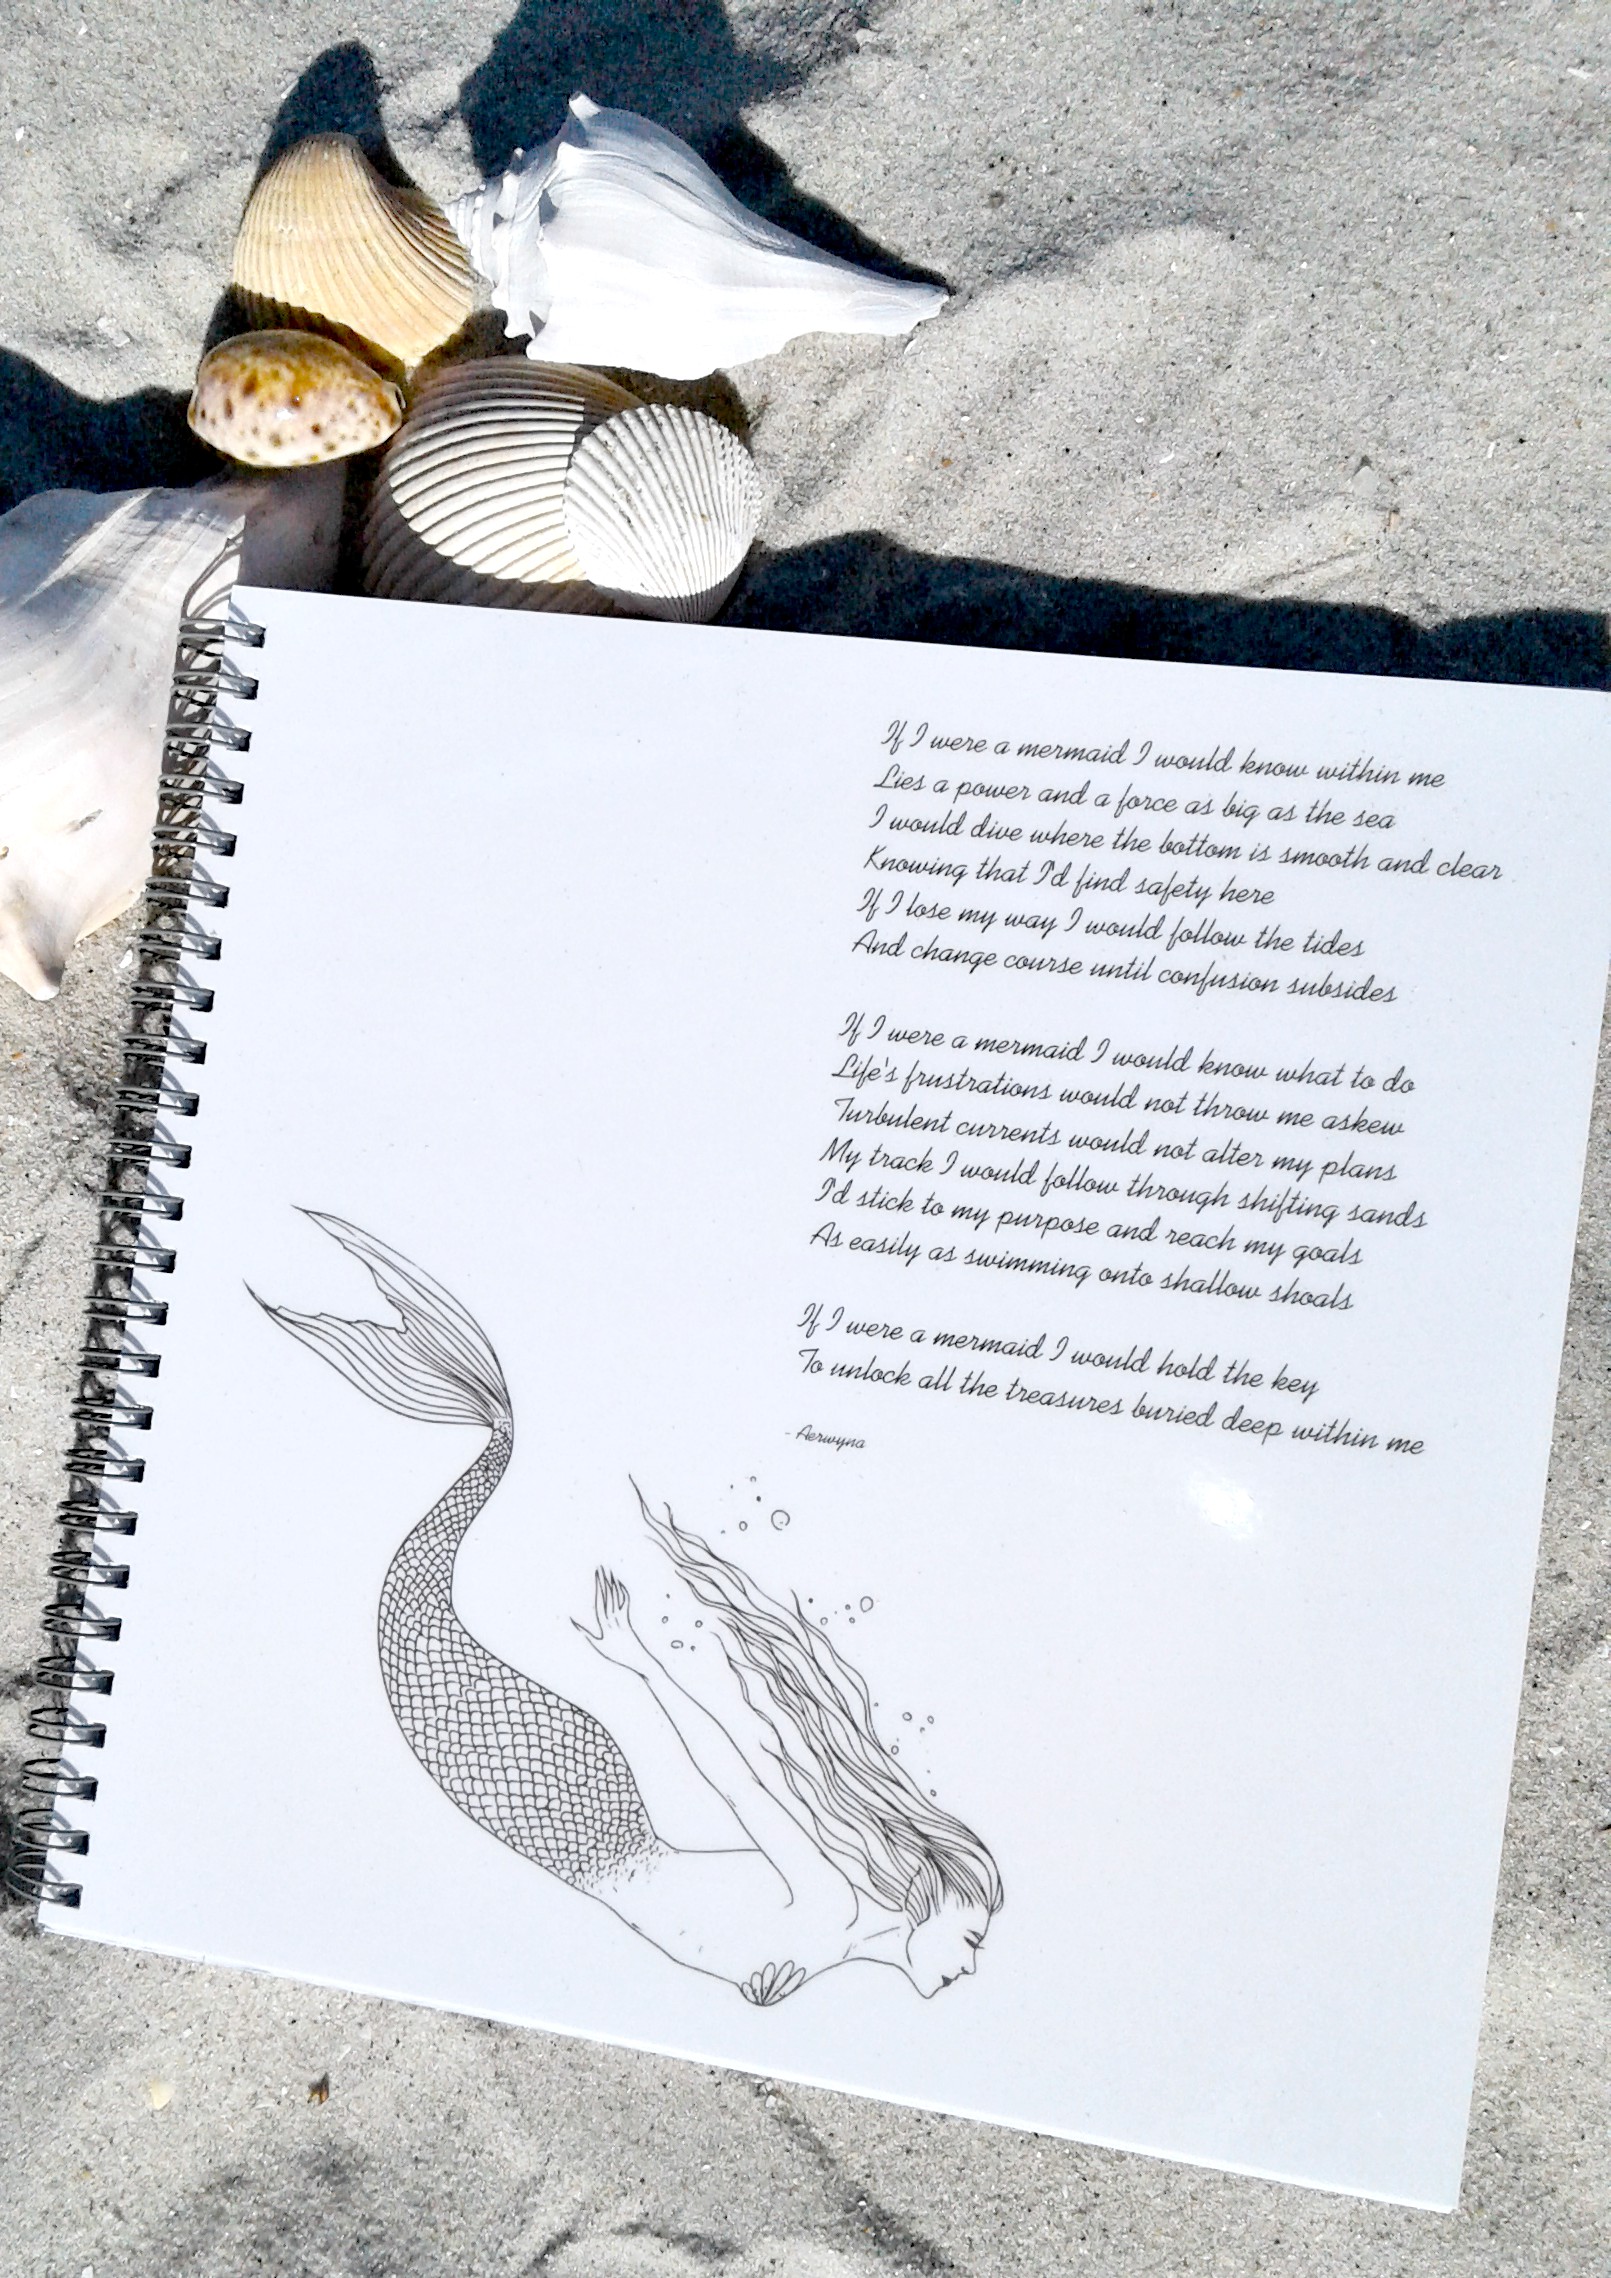 If I were a mermaid I would know within me
Lies a power and a force as big as the sea
I would dive where the bottom is smooth and clear
Knowing that I'd find safety here
If I lose my way I would follow the tides
And change course until confusion subsides
If I were a mermaid I would know what to do
Life's frustrations would not throw me askew
Turbulent currents would not alter my plans
My track I would follow through shifting sands
I'd stick to my purpose and reach my goals
As easily as swimming onto shallow shoals
If I were a mermaid I would hold the key
To unlock all the treasures buried deep within me
- Aerwyna